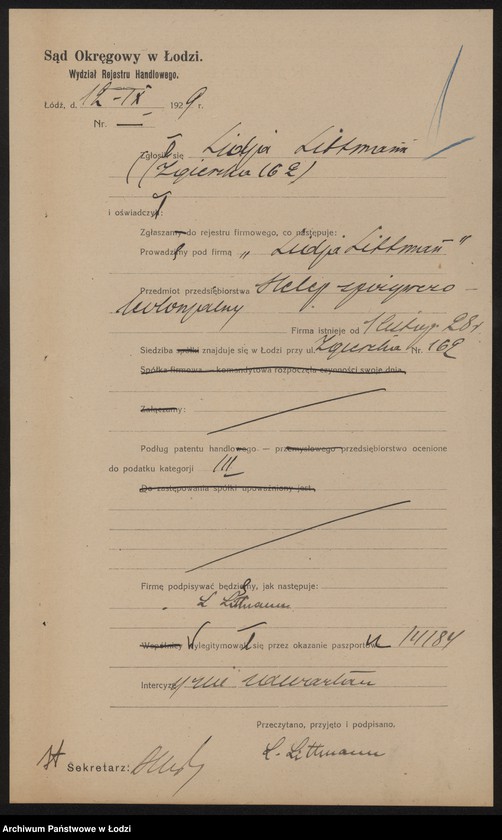 Sąd Okręgowy w Łodzi.
Wydział Rejestru Handlowego.
Łódź, d. 12-IX 1929 r.
Nr. —
Zgłosił się Lidja Littmann
(Zgierska 162)
i oświadczył
Zgłaszamy do rejestru firmowego, co następuje:
Prowadzimy pod firmą „Lidja Littman"
Przedmiot przedsiębiorstwa Sklep spożywczo-
kolonjalny
Firma istnieje od 1 lutego 28 r.
Siedziba spółki znajduje się w Łodzi przy ul. Zgierska Nr. 162
Spółka firmowa — komandytowa rozpoczęła czynności swoje dnia
Załączamy:
Podług patentu handlowego — przemysłowego przedsiębiorstwo ocenione
do podatku kategorji III
Do zastępowania spółki upoważniony jest
Firmę podpisywać będziemy, jak następuje:
L Littmann
Wspólnicy Wylegitymował się przez okazanie paszportów 14184
Intercyzy nie zawarłam
Przeczytano, przyjęto i podpisano.
L. Littmann
Sekretarz:
Archiwum Państwowe w Łodzi